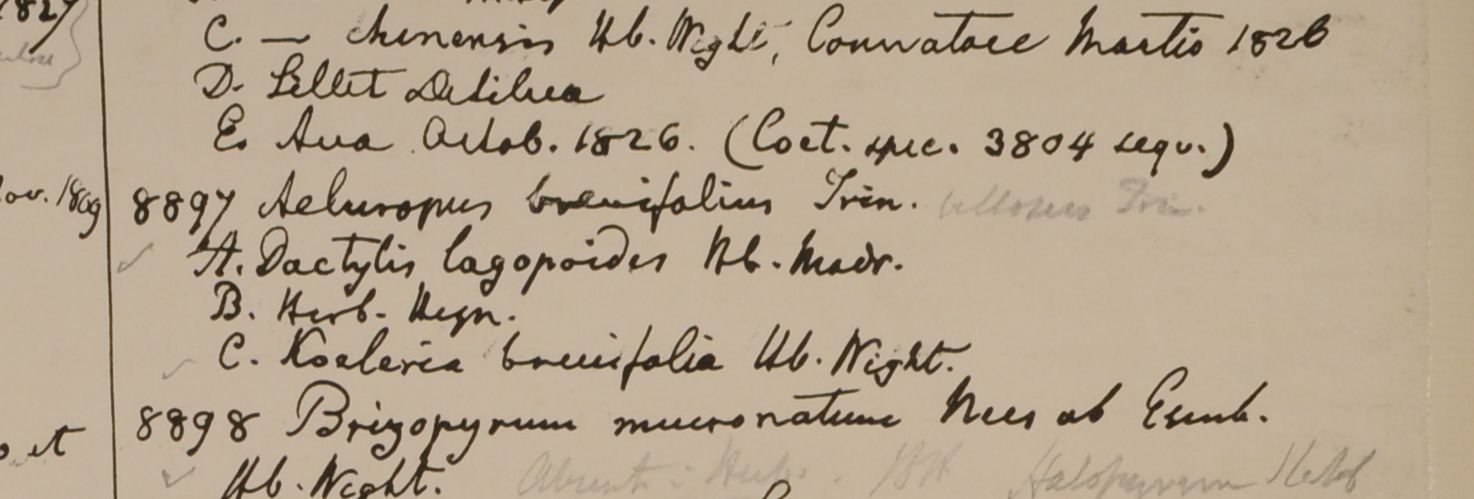 1827
C. — chinensis Hb. Wight, Connatore Martio 1826
D. Sillet Desilua
E. Ava Octob. 1826. (Coet. spec. 3804 sequ.)
ov. 1809
8897 Aeluropus brevifolius Trin. villosus Trin.
A. Dactylis lagopoides Hb. Madr.
B. Herb. Heyn.
C. Koeleria brevifolia Hb. Wight.
8898 Brizopyrum mucronatum Nees ab Esenb.
o et
Hb. Wight. Absent: Herb. Halopyrum